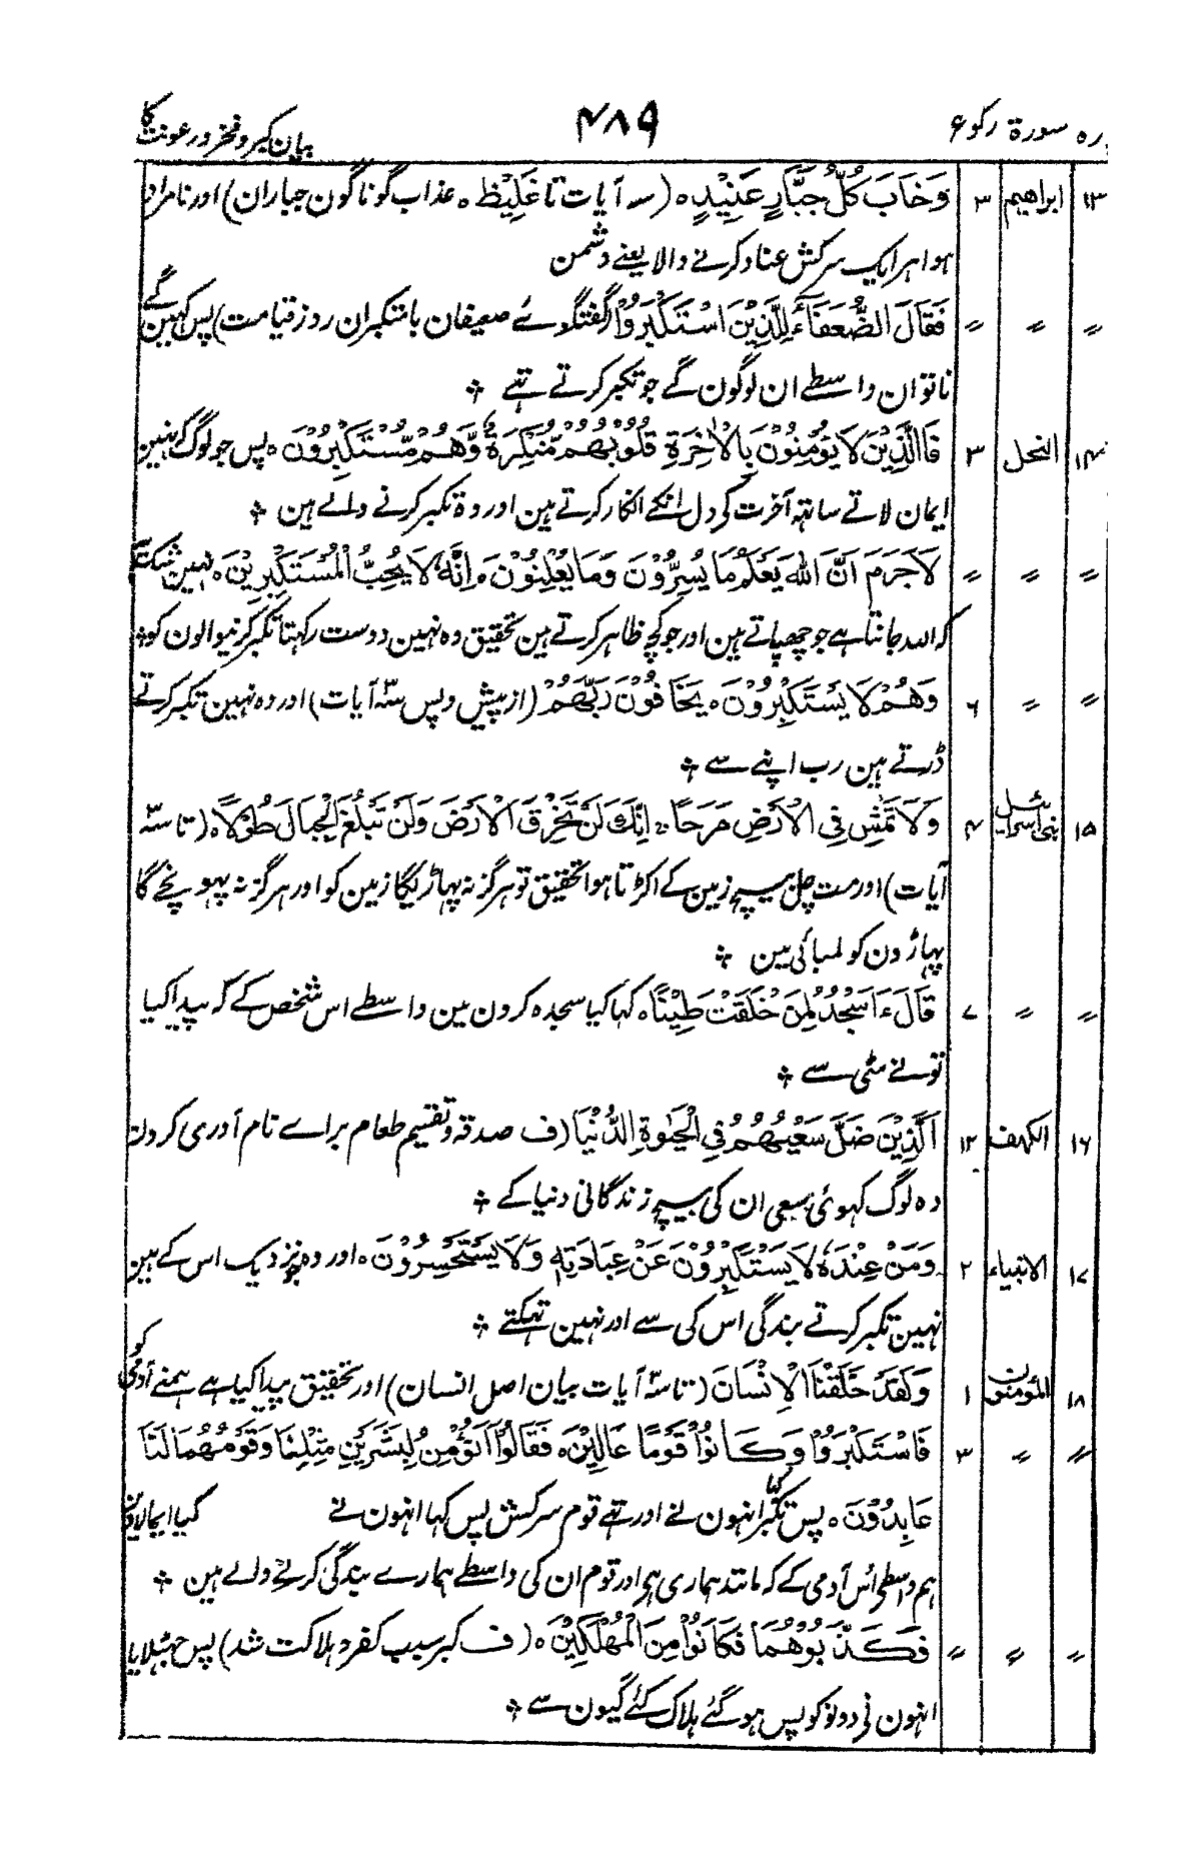 رہ سورۃ رکوع ۴۸۹ بیان کبر و فخر و رعونت کا
۱۳ ابراھیم ۳ وَخَابَ كُلُّ جَبَّارٍ عَنِيْدٍ ہ (سہ آیات تا غَلِيْظ ہ عذاب گوناگون جباران) اور نامراد
ہوا ہر ایک سرکش عناد کرنے والا یعنے دشمن
〃 〃 〃 فَقَالَ الضُّعَفَآءُ لِلَّذِيْنَ اسْتَكْبَرُوْا (گفتگوئے ضعیفان با متکبران روز قیامت) پس کہیں گے
ناتوان واسطے ان لوگون کے جو تکبر کرتے تہے ؞
۱۴ النحل ۳ فَالَّذِيْنَ لَا يُؤْمِنُوْنَ بِالْاٰخِرَةِ قُلُوْبُهُمْ مُّنْكِرَةٌ وَّهُمْ مُّسْتَكْبِرُوْنَ ہ پس جو لوگ کہ نہین
ایمان لاتے ساتہہ آخرت کی دل انکے انکار کرتے ہین اور وہ تکبر کرنے والے ہین ؞
〃 〃 〃 لَاجَرَمَ اَنَّ اللّٰهَ يَعْلَمُ مَا يُسِرُّوْنَ وَمَا يُعْلِنُوْنَ ہ اِنَّهٗ لَا يُحِبُّ الْمُسْتَكْبِرِيْنَ ہ نہین شک ہے
کہ اللہ جانتا ہے جو چھپاتے ہین اور جو کچھ ظاہر کرتے ہین تحقیق وہ نہین دوست رکہتا تکبر کرنیوالون کو ؞
〃 〃 ۶ وَهُمْ لَا يَسْتَكْبِرُوْنَ ہ يَخَافُوْنَ رَبَّهُمْ (از پیش و پس سہ آیات) اور وہ نہین تکبر کرتے
ڈرتے ہین رب اپنے سے ؞
۱۵ بنی اسرائیل ۴ وَلَا تَمْشِ فِي الْاَرْضِ مَرَحًا ہ اِنَّكَ لَنْ تَخْرِقَ الْاَرْضَ وَلَنْ تَبْلُغَ الْجِبَالَ طُوْلًا ہ (تا سہ
آیات) اور مت چل بیچ زمین کے اکڑتا ہوا تحقیق تو ہرگز نہ پہاڑیگا زمین کو اور ہرگز نہ پہونچے گا
پہاڑون کو لمبائی مین ؞
〃 〃 ۷ قَالَ ءَاَسْجُدُ لِمَنْ خَلَقْتَ طِيْنًا ہ کہا کیا سجدہ کرون مین واسطے اس شخص کے کہ پیدا کیا
تونے مٹی سے ؞
۱۶ الکھف ۱۲ اَلَّذِيْنَ ضَلَّ سَعْيُهُمْ فِي الْحَيٰوةِ الدُّنْيَا (ف صدقہ و تقسیم طعام براے نام آوری کردن
وہ لوگ کہوئی سعی ان کی بیچ زندگانی دنیا کے ؞
۱۷ الانبیاء ۲ وَمَنْ عِنْدَهٗ لَا يَسْتَكْبِرُوْنَ عَنْ عِبَادَتِهٖ وَلَا يَسْتَحْسِرُوْنَ ہ اور وہ جو نزدیک اس کے ہین
نہین تکبر کرتے بندگی اس کی سے اور نہین تہکتے ؞
۱۸ المؤمنون ۱ وَلَقَدْ خَلَقْنَا الْاِنْسَانَ (تا سہ آیات بیان اصل انسان) اور تحقیق پیدا کیا ہے ہمنے آدمی کو
〃 〃 ۳ فَاسْتَكْبَرُوْا وَكَانُوْا قَوْمًا عَالِيْنَ ہ فَقَالُوْا اَنُؤْمِنُ لِبَشَرَيْنِ مِثْلِنَا وَقَوْمُهُمَا لَنَا
عَابِدُوْنَ ہ پس تکبر کیا انہون نے اور تہے قوم سرکش پس کہا انہون نے کیا ایمان لاوین
ہم واسطے اس آدمی کے کہ مانند ہماری ہو اور قوم ان کی واسطے ہمارے بندگی کرنے والے ہین ؞
〃 〃 〃 فَكَذَّبُوْهُمَا فَكَانُوْا مِنَ الْمُهْلَكِيْنَ ہ (ف کبر سبب کفر و ہلاکت شد) پس جہٹلایا
انہون نے دونو کو پس ہوگئے ہلاک کئے گیون سے ؞